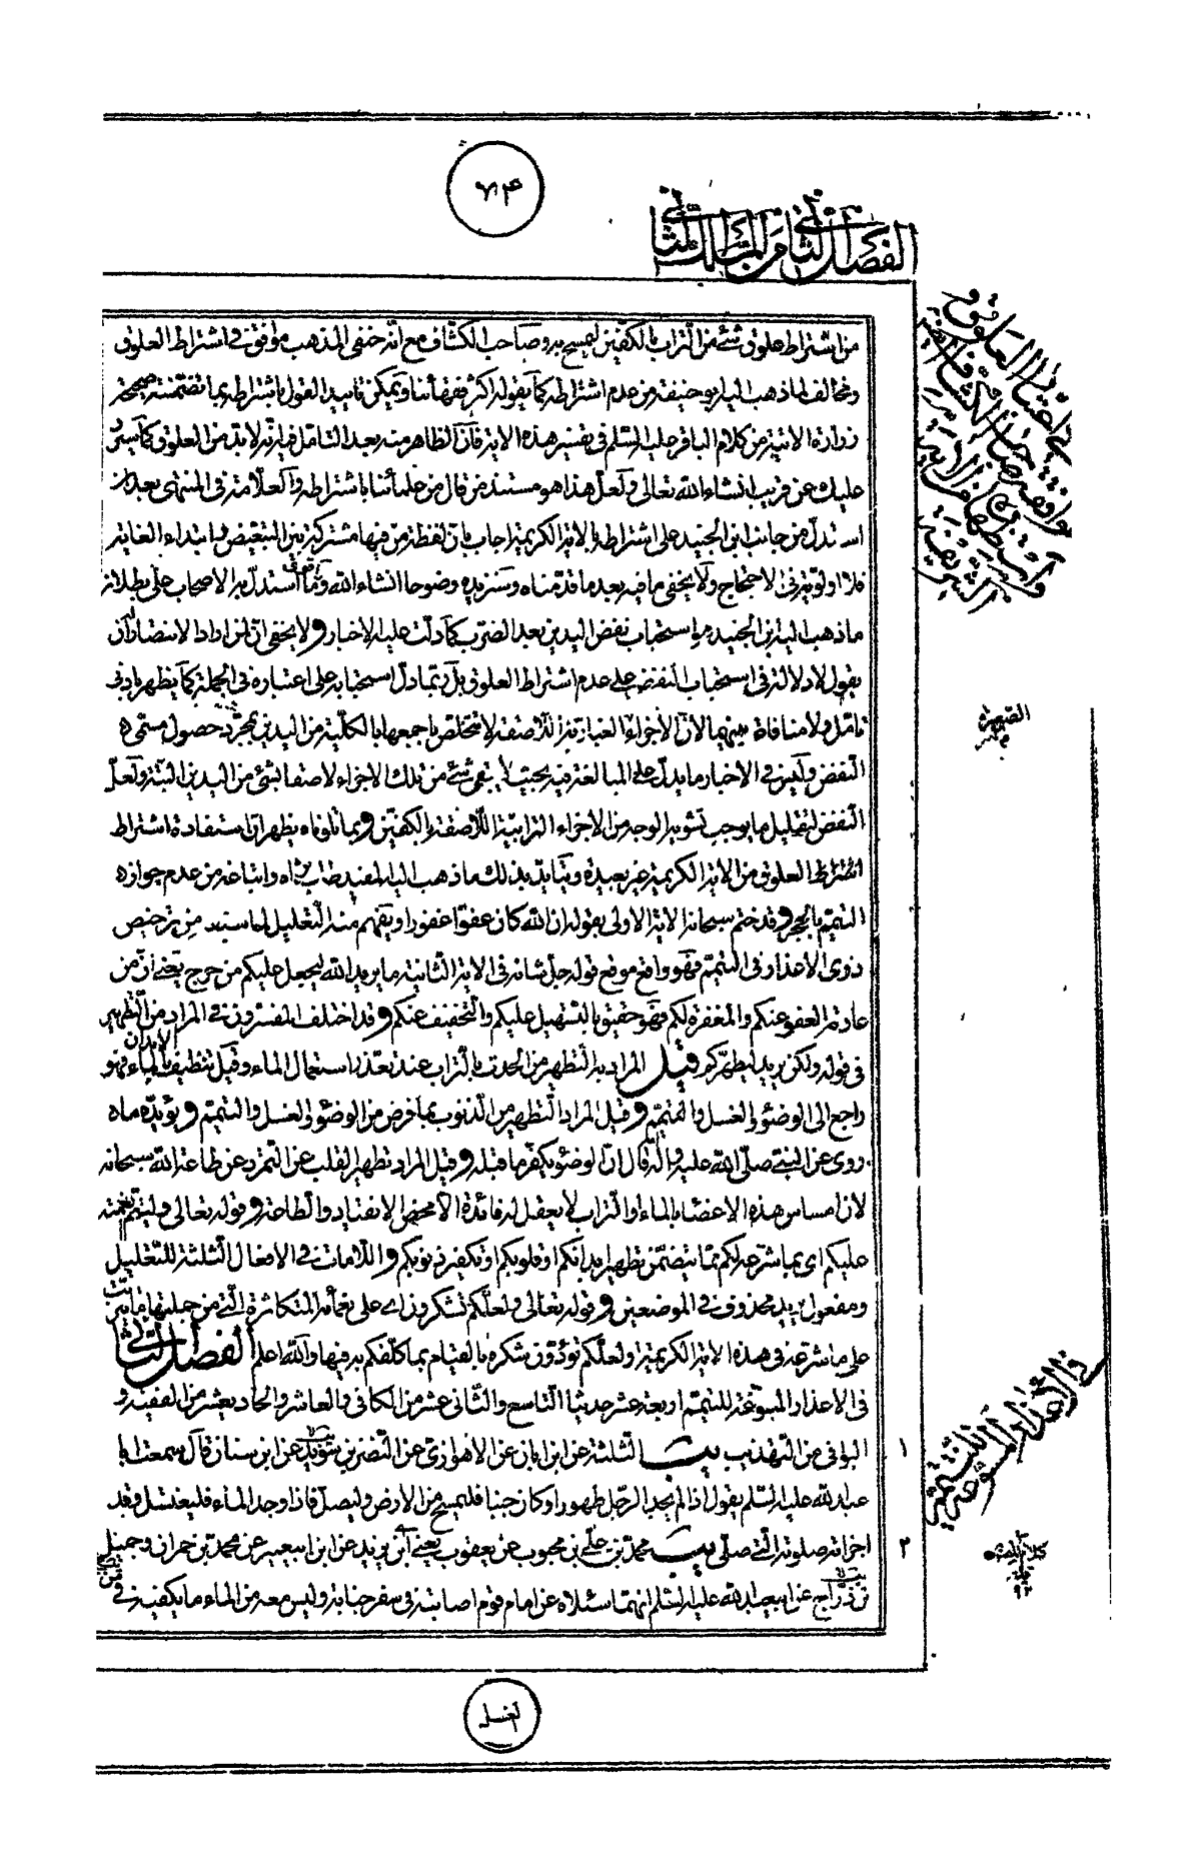 ٧٤
الفصل الثاني من المسلك الثاني
من اشتراط علوق شئ من التراب بالكفين ليمسح به وصاحب الكشاف مع انه حنفى المذهب موافق فى اشتراط العلوق
ومخالف لما ذهب اليه ابو حنيفة من عدم اشتراطه كما يقوله اكثر فقهائنا ويمكن تاييد القول باشتراطه بما تضمنته صحيحة
زرارة الاتية من كلام الباقر عليه السلم فى تفسير هذه الاية فان الظاهر منه بعد التامل فيه انه لابد من العلوق كما سيرد
عليك عن قريب انشاء الله تعالى ولعل هذا هو مستند من قال من علمائنا باشتراطه والعلامة فى المنتهى بعد ان
استدل من جانب ابن الجنيد على اشتراطه بالاية الكريمة اجاب بان لفظة من فيها مشتركة بين التبعيض وابتداء الغاية
فلا اولوية فى الاحتجاج ولا يخفى ما فيه بعد ما قدمناه وسنزيده وضوحا انشاء الله تعالى وما استدل به الاصحاب على بطلان
ما ذهب اليه ابن الجنيد من استحباب نفض اليدين بعد الضرب كما دلت عليه الاخبار ولا يخفى ان لمن اراد الانتصار له ان
يقول لا دلالة فى استحباب النفض على عدم اشتراط العلوق بل ربما دل استحبابه على اعتباره فى الجملة كما يظهر بادنى
تامل ولا منافاة بينهما لان الاجزاء الغبارية اللاصقة لا تتخلص باجمعها بالكلية من اليدين بمجرد حصول مسمى
النفض وليس فى الاخبار ما يدل على المبالغة فيه بحيث لا يبقى شئ من تلك الاجزاء لاصقا بشئ من اليدين البتة ولعل
النفض لتقليل ما يوجب تشويه الوجه من الاجزاء الترابية اللاصقة بالكفين وبما تلوناه يظهر ان استفادة اشتراط
العلوق من الاية الكريمة غير بعيدة ويتايد بذلك ما ذهب اليه المفيد طاب ثراه واتباعه من عدم جوازه
التيمم بالحجر وقد ختم سبحانه الاية الاولى بقوله ان الله كان عفوا غفورا ويفهم منه التعليل لما سبقه من ترخيص
ذوى الاعذار فى التيمم فهو واقع موقع قوله جل شانه فى الاية الثانية ما يريد الله ليجعل عليكم من حرج يعنى ان من
عادته العفو عنكم والمغفرة لكم فهو حقيق بالتسهيل عليكم والتخفيف عنكم وقد اختلف المفسرون فى المراد من التطهير
فى قوله ولكن يريد ليطهركم فقيل المراد به التطهير من الحدث بالتراب عند تعذر استعمال الماء وقيل تنظيف الابدان بالماء فهو
راجع الى الوضوء والغسل والتيمم وقيل المراد التطهير من الذنوب بما فرض من الوضوء والغسل والتيمم ويؤيده ما
روى عن النبى صلى الله عليه واله قال ان الوضوء يكفر ما قبله وقيل المراد تطهير القلب عن التمرد عن طاعة الله سبحانه
لان امساس هذه الاعضاء بالماء والتراب لا يعقل له فائدة الا محض الانقياد والطاعة وقوله تعالى وليتم نعمته
عليكم اى بما شرعه لكم مما يتضمن تطهير ابدانكم او قلوبكم او تكفير ذنوبكم واللامات فى الافعال الثلثة للتعليل
ومفعول يريد محذوف فى الموضعين وقوله تعالى ولعلكم تشكرون اى على نعمائه المتكاثرة التى من جملتها ما يترتب
على ما شرعه فى هذه الاية الكريمة او لعلكم تؤدون شكره بالقيام بما كلفكم به فيها والله اعلم الفصل الثانى
فى الاعذار المسوغة للتيمم اربعة عشر حديثا التاسع والثانى عشر من الكافى والعاشر والحاديعشر من الفقيه و
١ البواقى من التهذيب يب الثلثة عن ابن ابان عن الاهوازى عن النضر بن سويد عن ابن سنان قال سمعت ابا
عبد الله عليه السلم يقول اذا لم يجد الرجل طهورا وكان جنبا فليمسح من الارض وليصل فاذا وجد الماء فليغتسل وقد
٢ اجزاته صلوته التى صلى يب محمد بن على بن محبوب عن يعقوب يعنى ابن يزيد عن ابن ابيعمير عن محمد بن حمران وجميل
بن دراج عن ابيعبد الله عليه السلم انهما سئلاه عن امام قوم اصابته فى سفر جنابة وليس معه من الماء ما يكفيه فى
فى الاعذار المسوغة للتيمم
الغسل